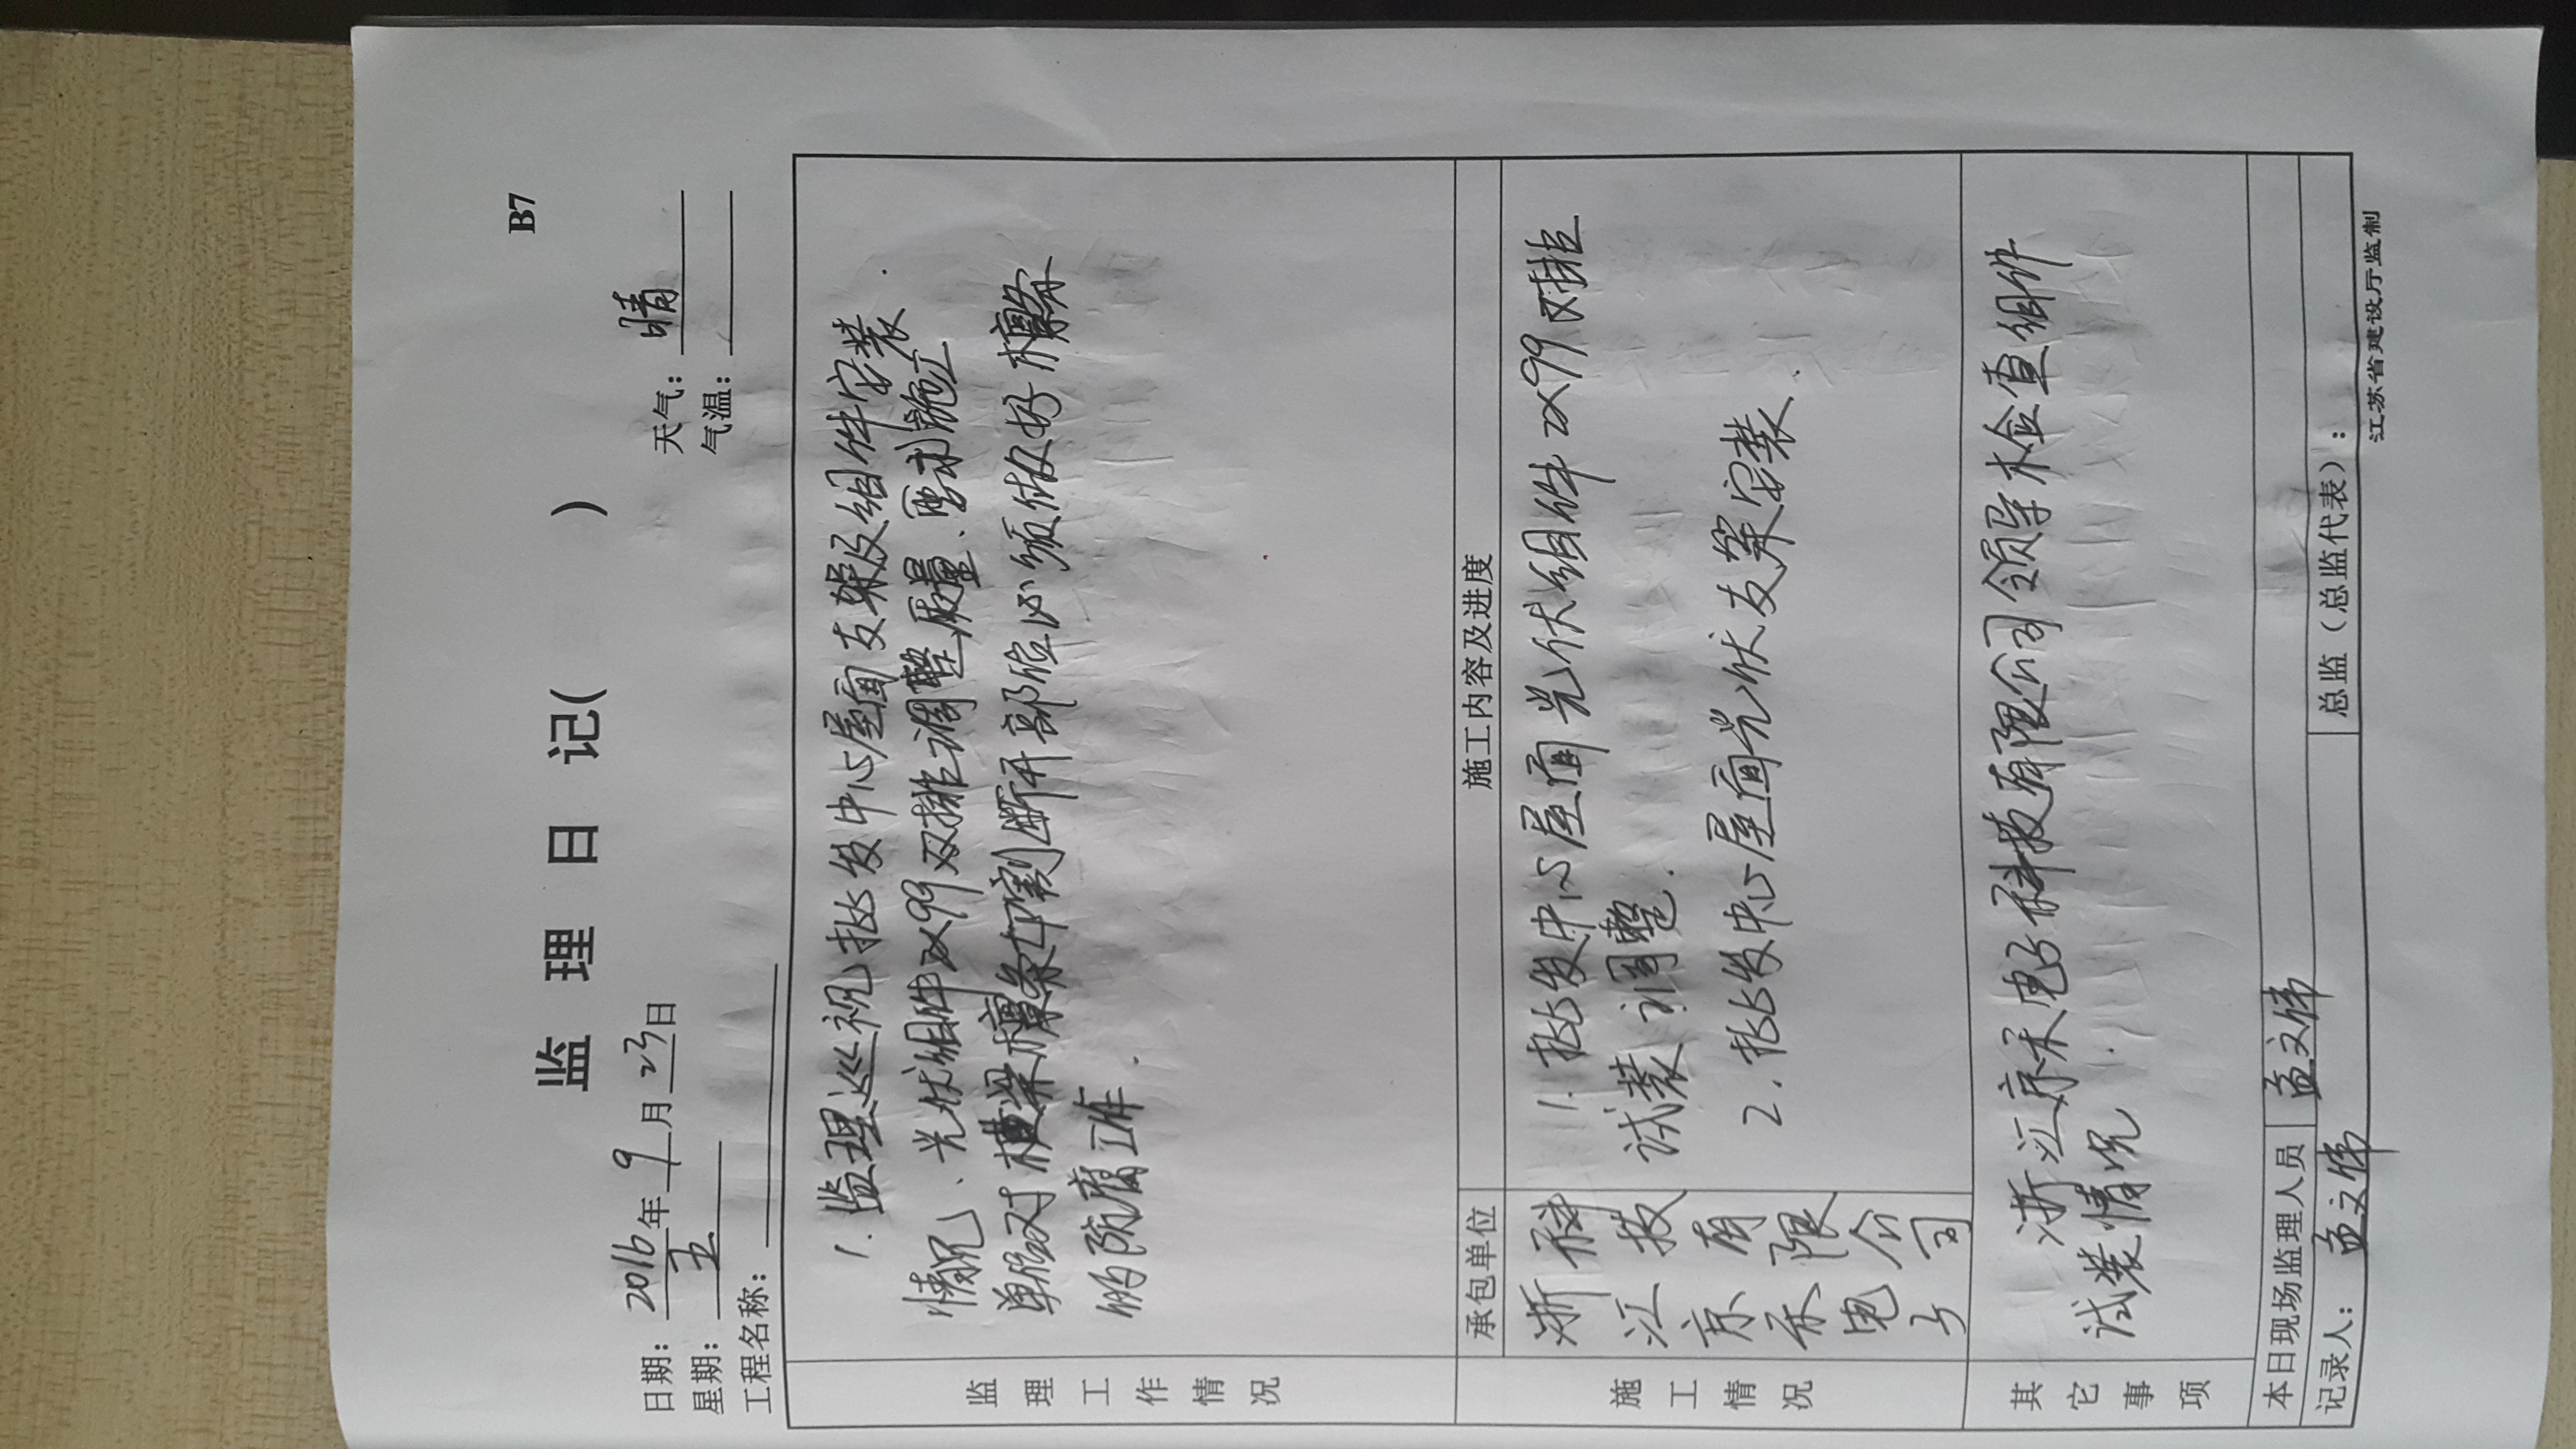 B7
监 理 日 记( )
日期: 2016年 9 月 23日 天气: 晴
星期: 五 气温:
工程名称:
监理工作情况
1. 监理巡视批发中心屋面支架及组件安装
情况、光伏组件以99双排调整质量、要求施工
单位对 檩条切割断开部位必须做好檩条
的防腐工作.
施工情况
承包单位 施工内容及进度
浙江京禾电子科技有限公司
1. 批发中心屋面光伏组件以99双排
试装调整.
2. 批发中心屋面光伏支架安装.
其它事项
浙江京禾电子科技有限公司领导来检查组件
试装情况.
本日现场监理人员 孟文伟
记录人: 孟文伟 总监(总监代表):
江苏省建设厅监制